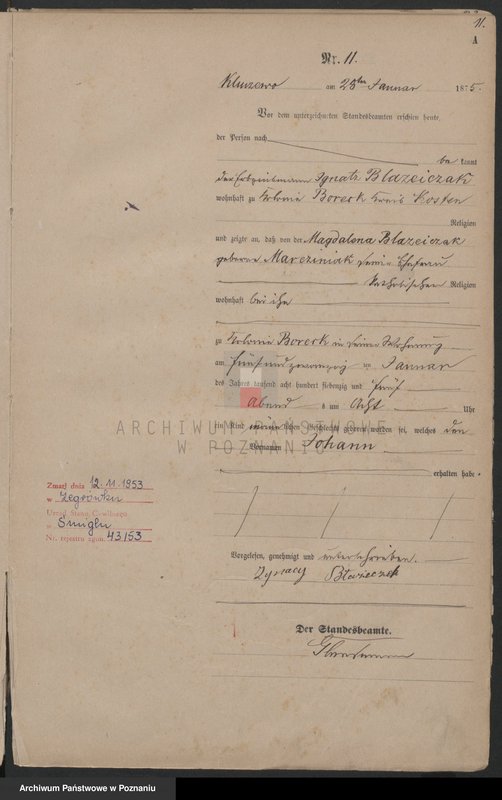 11.
A
Nr. 11.
Kluczewo am 28ten Januar 1875.
Vor dem unterzeichneten Standesbeamten erschien heute,
der Person nach
be kannt
der Ignatz Blazeiczak
wohnhaft zu Kolonie Boreck Kreis Kosten
Religion
und zeigte an, daß von der Magdalena Blazeiczak
geborene Marciniak seine Ehefrau
katholischen Religion
wohnhaft bei ihm
zu Kolonie Boreck in seine Wohnung
am fünfundzwanzig ten Januar
des Jahres tausend acht hundert siebenzig und fünf
Abend s um Acht Uhr
ein Kind männlichen Geschlecht geboren worden sei, welches den
Vornamen Johann
erhalten habe.
Vorgelesen, genehmigt und unterschrieben.
Ignacy Błazieczak
Der Standesbeamte.
Zmarł dnia 12.11.1953
w Żegrówku
Urząd Stanu Cywilnego
w Śmiglu
Nr. rejestru zgon. 43/53
ARCHIWUM PAŃSTWOWE
W POZNANIU
Archiwum Państwowe w Poznaniu